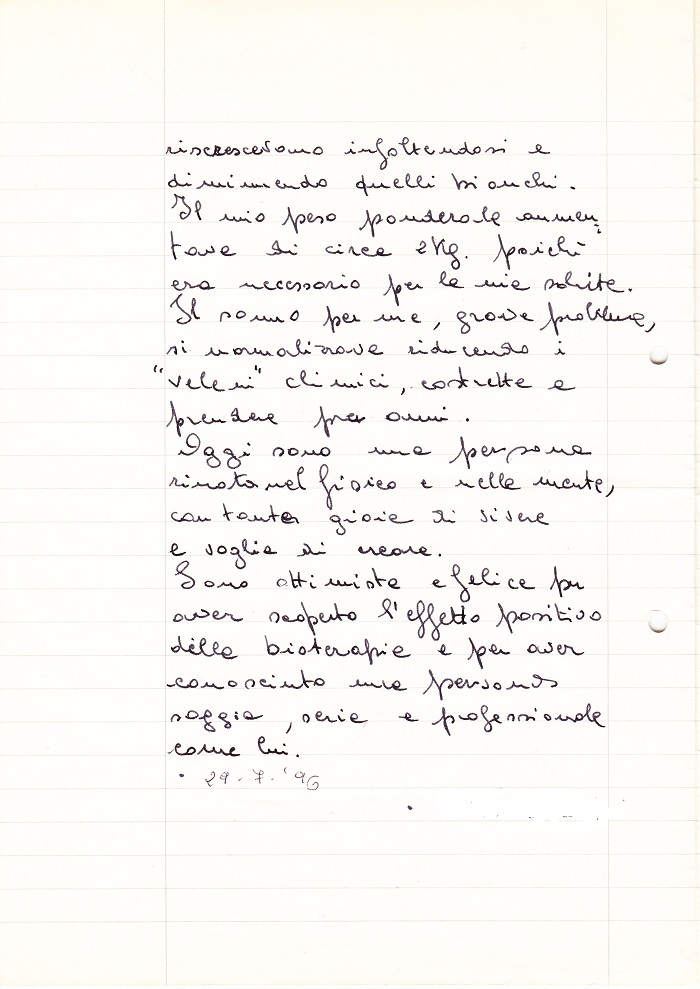 riscrescevano infoltendosi e
diminuendo quelli bianchi.
Il mio peso ponderale aumen
tava di circa 2Kg. poichè
era necessario per la mia salute.
Il sonno per me, grave problema,
si normalizzava riducendo i
"veleni" chimici, costretta a
prendere per anni.
Oggi sono una persona
rinata nel fisico e nella mente,
con tanta gioia di vivere
e voglia di creare.
Sono ottimista e felice per
aver scoperto l'effetto positivo
della bioterapia e per aver
conosciuto una persona
saggia, seria e professionale
come lui.
29-7-'96